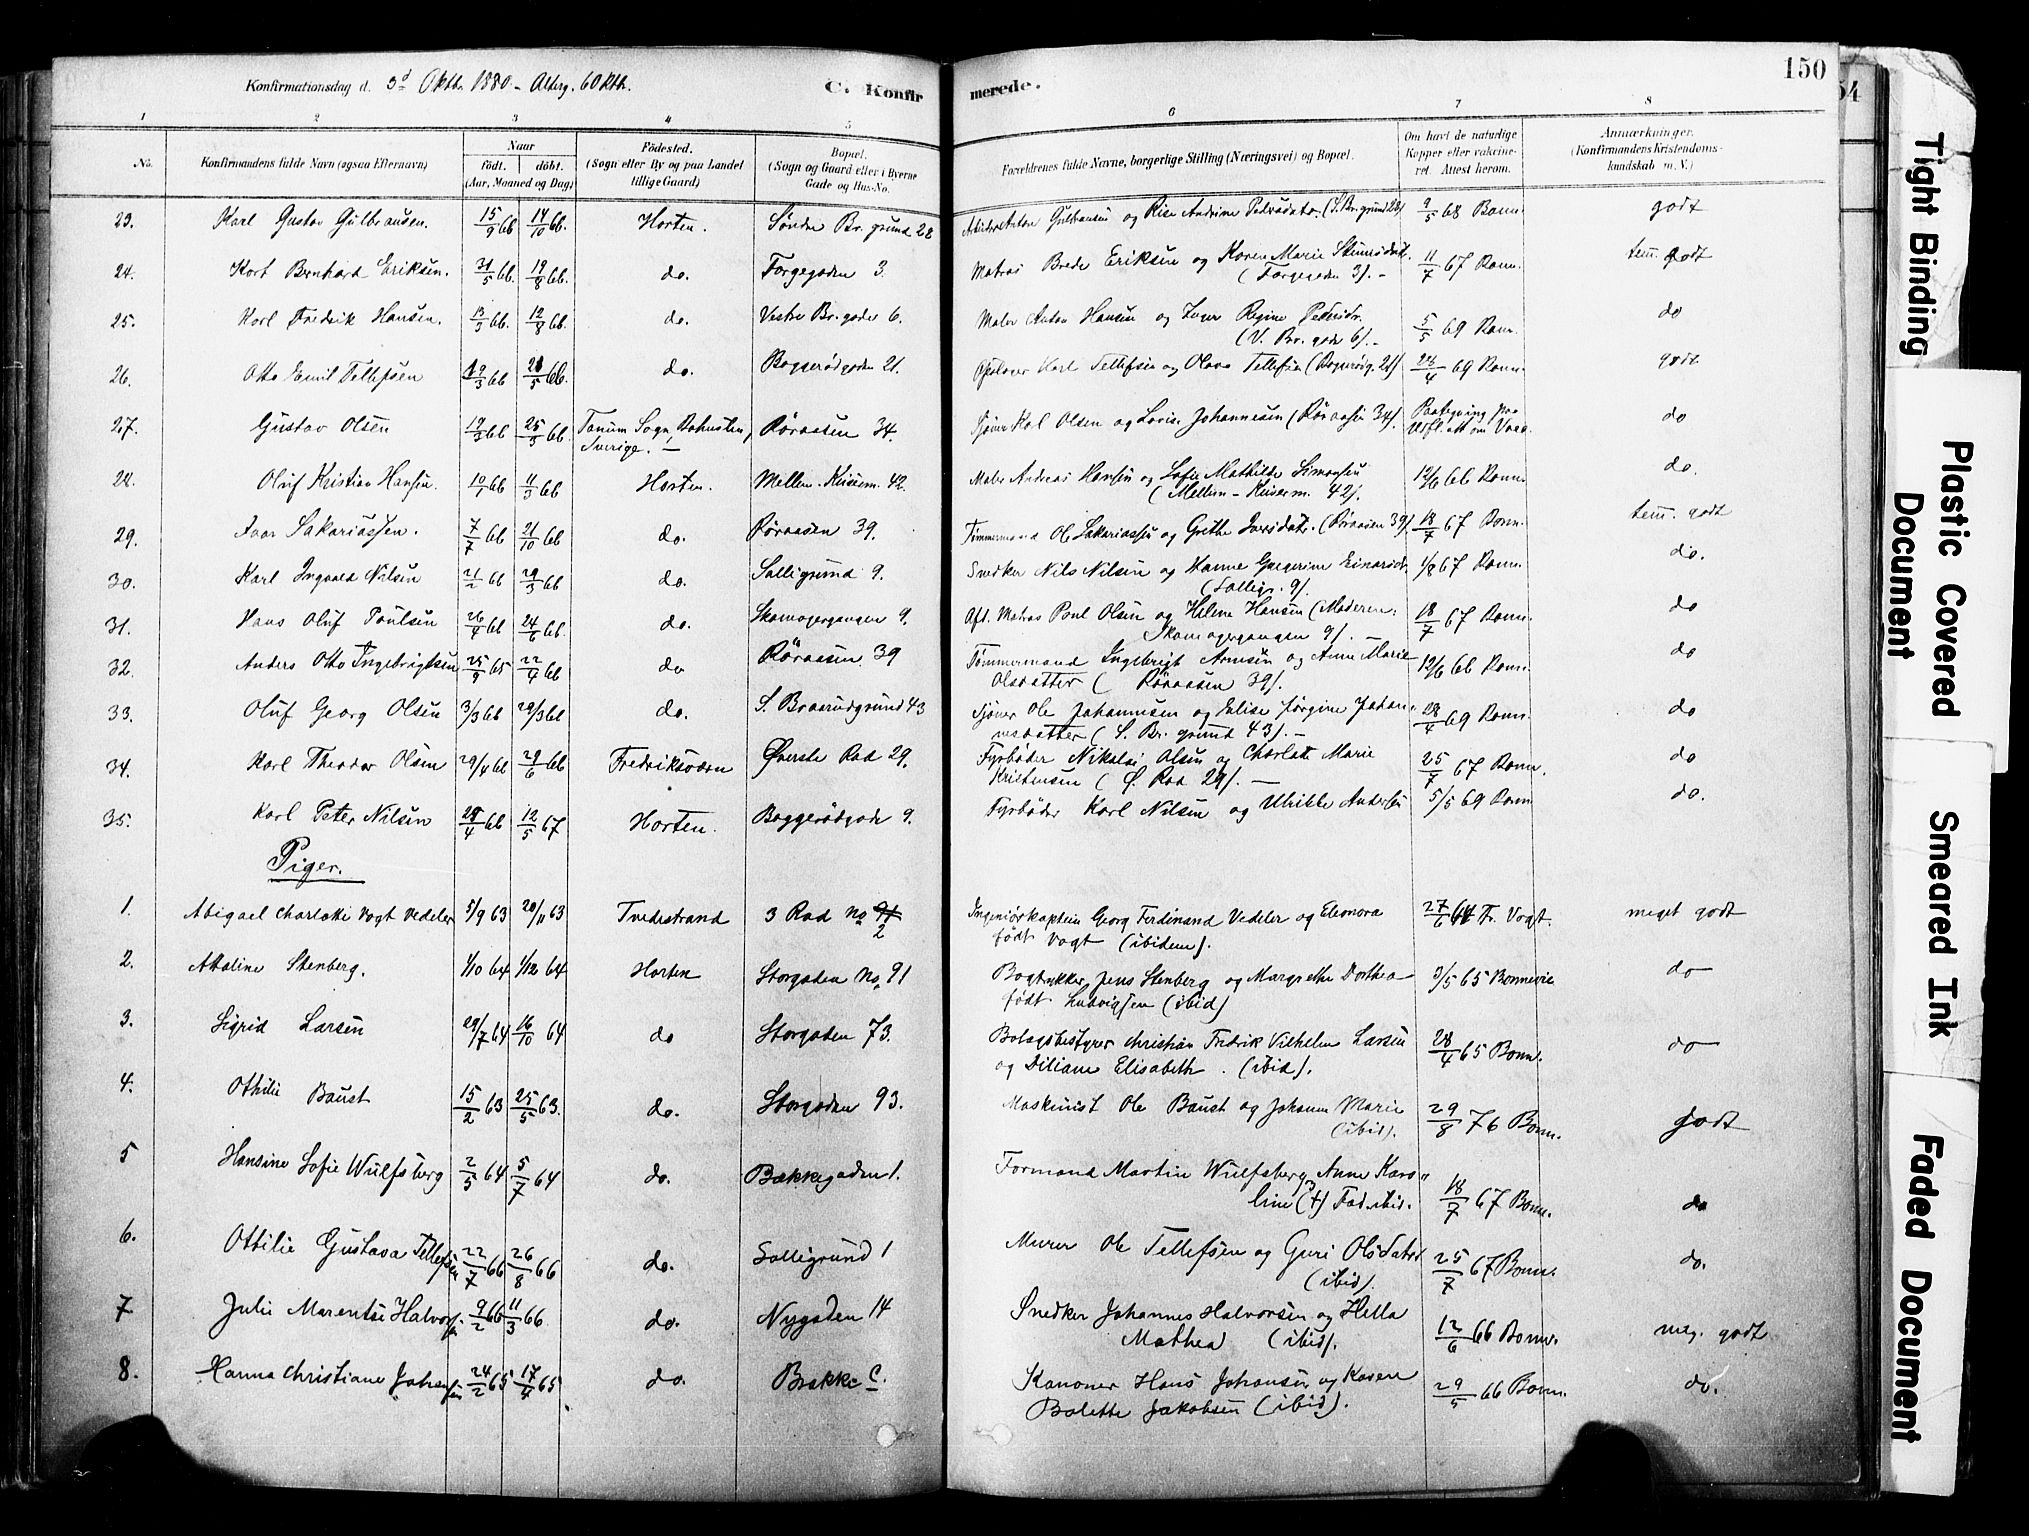 Konfirmationsdag d. 3d Oktb. 1880 - Alterg. 6 Oktb.
C. Konfir
merede.
150
54
1 2 3 4 5 6 7 8
No.
Konfirmandens fulde Navn (ogsaa Efternavn)
Naar
født. døbt.
(Aar, Maaned og Dag)
Fødested.
(Sogn eller By og paa Landet
tillige Gaard)
Bopæl.
(Sogn og Gaard eller i Byerne
Gade og Hus-No.
Forældrenes fulde Navne, borgerlige Stilling (Næringsvei) og Bopæl.
Om havt de naturlige
Kopper eller vakcine-
ret. Attest herom.
Anmærkninger.
(Konfirmandens Kristendoms-
kundskab m. V.)
23. Karl Gustav Gulbrandsen. 15/9 66 14/10 66. Horten. Søndre Br. grund 28 Gulbransen og Andrine Pedersdatr. (S. Br. grund 28) 9/5 68 Bonn. godt
24. Kort Bernhard Eriksen. 31/5 66. 19/8 66. do. Forgegaden 3. Matros Brede Eriksen og Karen Marie
(Forgegaden 3). - 11/7 67 Bonn. tem. godt
25. Karl Fredrik Hansen. 13/3 66. 12/8 66. do. Vestre Br. gade 6. Maler Anton Hansen og Inger Regine Pedersdr.
(V. Br. gade 6). - 5/5 69 Bonn. do
26. Otto Emil Tellefsen 19/3 66 21/5 66. do. Baggerødgaden 21. Karl Tellefsen og Olava Tellefsen (Bagerødg. 21) 28/4 69 Bonn. godt
27. Gustav Olsen 19/3 66 25/3 66. Tanum Sogn, Bahuslen,
Sverige. - Røraasen 34. Sjøner Karl Olsen og Lovise Johannesen (Røraasen 34). do
28. Oluf Kristian Hansen. 10/1 66 11/3 66 Horten. Mellem-Keiserm. 42. Maler Andreas Hansen og Sofie Mathilde Simonsen
(Mellem-Keiserm. 42). 12/6 66 Bonn. do.
29. Ivar Sakariassen. 7/7 66 21/10 66 do. Røraasen 39. Tømmermand Ole Sakariassen og Grethe Iversdatr. (Røraasen 39). 18/7 67 Bonn. tem. godt
30. Karl Ingvald Nilsen 21/2 66 29/3 66 do. Solligrund 9. Snedker Nils Nilsen og Hanne Gregerine Einarsdr.
(Solligr. 9). 1/8 67 Bonn. do.
31. Hans Oluf Poulsen 26/4 66 24/6 66. do. Skomagergangen 9. Aft. Matros Poul Olsen og Helene Hansen (Moderen:
Skomagergangen 9). - 18/7 67 Bonn. do
32. Anders Otto Ingebrigtsen 25/9 65 22/4 66 do Røraasen 39 Tømmermand Ingebrigt Arnesen og Anne Marie
Olsdatter (Røraasen 39). 12/6 66 Bonn. do
33. Oluf Georg Olsen 3/3 66 29/3 66 do. S. Braarudgrund 43 Sjøner Ole Johannesen og Elise Jørgine Johan-
nesdatter (S. Br. grund 43). - 28/4 69 Bonn. do
34. Karl Theodor Olsen 29/4 66 29/6 66 Fredriksværn Øverste Rad 29. Fyrbøder Nikolai Olsen og Charlotte Marie
Kristensen (Ø. Rad 29). - 25/7 67 Bonn. do
35. Karl Peter Nilsen 28/4 66 12/5 67 Horten. Baggerødgade 9. Fyrbøder Karl Nilsen og Ulrikke Andersen 5/5 69 Bonn do.
Piger.
1. Abigael Charlotte Vogt Vedeler 5/9 63 20/11 63 Tvedestrand 3 Rad No 91 2 Ingeniørkaptein Georg Ferdinand Vedeler og Eleonora
født Vogt (ibidem). 27/6 64 Fr. Vogt. meget godt
2. Attaline Stenberg. 1/10 64 1/12 64 Horten Storgaden No. 91 Bogtrykker Jens Stenberg og Margrethe Dorthea
født Ludvigsen (ibid) 3/5 65 Bonnevie do
3. Sigrid Larsen 29/7 64 16/10 64 do Storgaden 73. Bolagsbestyrer Christian Fredrik Vilhelm Larsen
og Diliane Elisabeth. (ibid). 28/4 65 Bonn. do
4. Othilie Baust 15/2 63 25/5 63. do. Storgaden 93. Maskinist Ole Baust og Johanne Marie
(ibid). 29/8 76 Bonn. godt
5 Hansine Sofie Wulfsberg 2/5 64 5/7 64 do. Bækkegaden 1. Formand Martin Wulfsberg, Anne Karo-
line (†) Fad. ibid. 18/7 67 Bonn. do
6. Othilie Gustava Tellefsen 22/7 66 26/8 66 do. Solligrund 1 Murer Ole Tellefsen og Guri Olsdatr
(ibid). 25/7 67 Bonn. do.
7 Julie Marentse Halvorsen 9/2 66 11/3 66 do. Nygaden 14 Snedker Johannes Halvorsen og Hella
Mathea (ibid). 12/6 66 Bonn. meg. godt
8. Hanna Christiane Johansen 24/2 65 17/4 65 do. Brakke C. Kanoner Hans Johansen og Karen
Bolette Jakobsen (ibid). 29/5 66 Bonn. do.
Tight Binding
Plastic Covered
Document
Smeared Ink
Faded Document